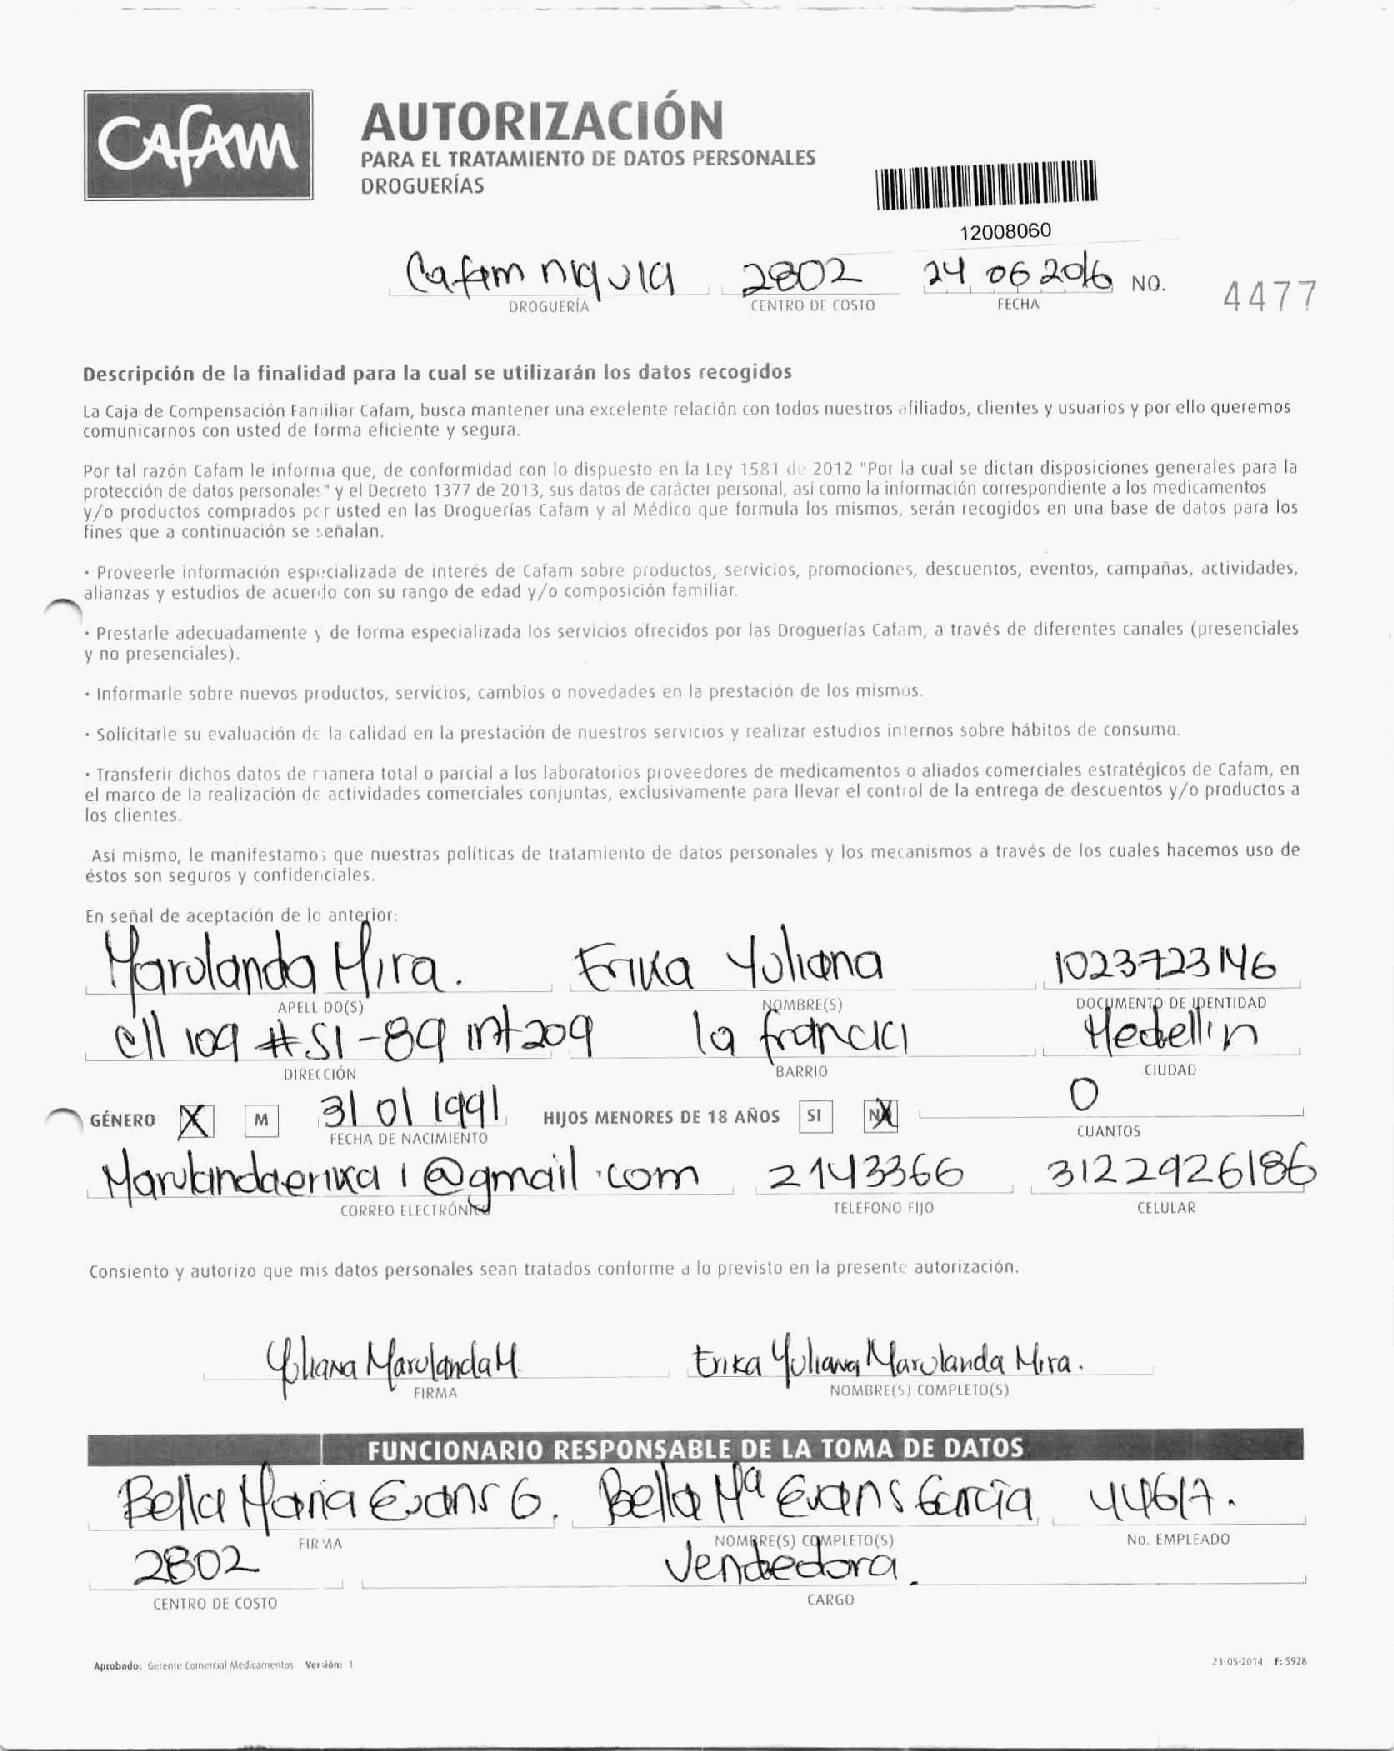 CAFAM
AUTORIZACIÓN
PARA EL TRATAMIENTO DE DATOS PERSONALES
DROGUERÍAS
12008060
Cafam niquia 2802 24 06 2016 NO. 4477
DROGUERÍA CENTRO DE COSTO FECHA
Descripción de la finalidad para la cual se utilizarán los datos recogidos
La Caja de Compensación Familiar Cafam, busca mantener una excelente relación con todos nuestros afiliados, clientes y usuarios y por ello queremos
comunicarnos con usted de forma eficiente y segura.
Por tal razón Cafam le informa que, de conformidad con lo dispuesto en la Ley 1581 de 2012 "Por la cual se dictan disposiciones generales para la
protección de datos personales" y el Decreto 1377 de 2013, sus datos de carácter personal, así como la información correspondiente a los medicamentos
y/o productos comprados por usted en las Droguerías Cafam y al Médico que formula los mismos, serán recogidos en una base de datos para los
fines que a continuación se señalan.
• Proveerle información especializada de interés de Cafam sobre productos, servicios, promociones, descuentos, eventos, campañas, actividades,
alianzas y estudios de acuerdo con su rango de edad y/o composición familiar.
• Prestarle adecuadamente y de forma especializada los servicios ofrecidos por las Droguerías Cafam, a través de diferentes canales (presenciales
y no presenciales).
• Informarle sobre nuevos productos, servicios, cambios o novedades en la prestación de los mismos.
• Solicitarle su evaluación de la calidad en la prestación de nuestros servicios y realizar estudios internos sobre hábitos de consumo.
• Transferir dichos datos de manera total o parcial a los laboratorios proveedores de medicamentos o aliados comerciales estratégicos de Cafam, en
el marco de la realización de actividades comerciales conjuntas, exclusivamente para llevar el control de la entrega de descuentos y/o productos a
los clientes.
Así mismo, le manifestamos que nuestras políticas de tratamiento de datos personales y los mecanismos a través de los cuales hacemos uso de
éstos son seguros y confidenciales.
En señal de aceptación de lo anterior:
Marulanda Mira. Erika Yuliana 1023723146
APELLIDO(S) NOMBRE(S) DOCUMENTO DE IDENTIDAD
Cll 109 #51-89 int 209 la francia Medellin
DIRECCIÓN BARRIO CIUDAD
GÉNERO X M 31 01 1991 HIJOS MENORES DE 18 AÑOS SI NO X 0
FECHA DE NACIMIENTO CUANTOS
Marulandaerika1@gmail.com 2143366 3122926186
CORREO ELECTRÓNICO TELÉFONO FIJO CELULAR
Consiento y autorizo que mis datos personales sean tratados conforme a lo previsto en la presente autorización.
Yuliana Marulanda M Erika Yuliana Marulanda Mira.
FIRMA NOMBRE(S) COMPLETO(S)
FUNCIONARIO RESPONSABLE DE LA TOMA DE DATOS
Bella Maria Evans G. Bella Mª Evans Garcia 44617.
FIRMA NOMBRE(S) COMPLETO(S) No. EMPLEADO
2802 Vendedora.
CENTRO DE COSTO CARGO
Aprobado: Gerente Comercial Medicamentos Versión: 1 23-05-2014 F: 5928